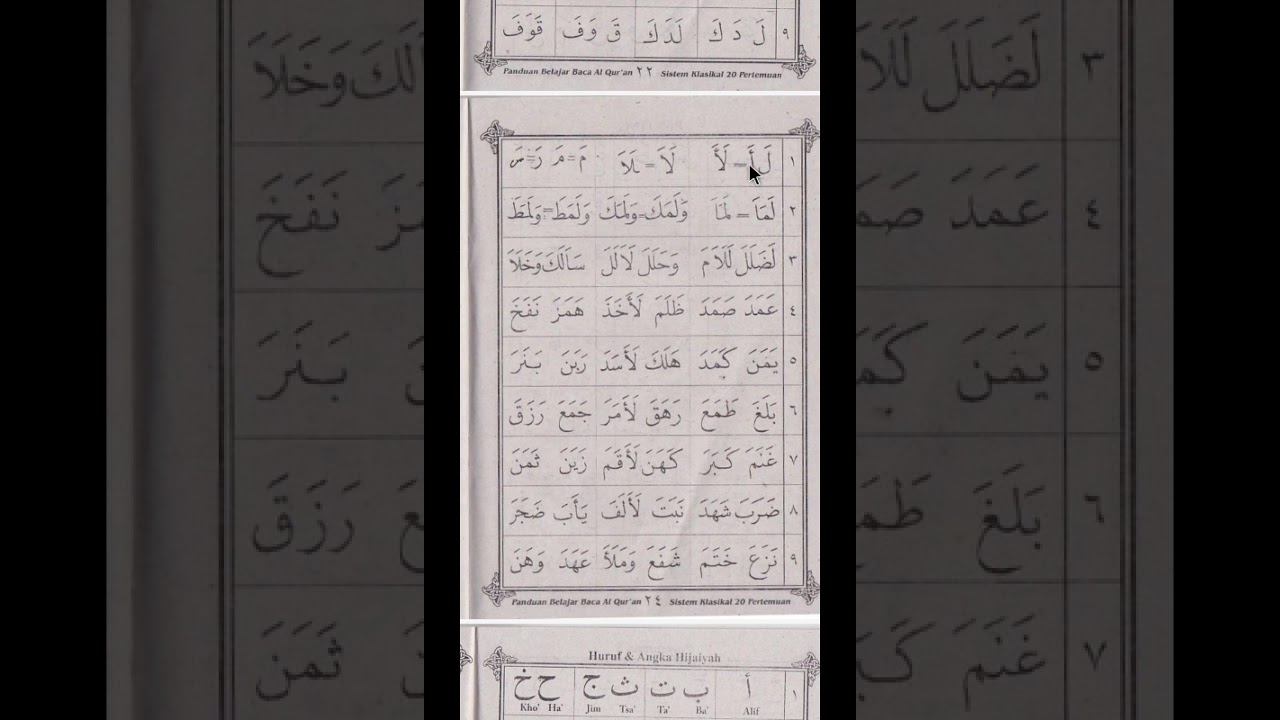 ٩ لَ دَ كَ لَدَكَ قَ وَ فَ قَوَفَ
Panduan Belajar Baca Al Qur'an ٢٢ Sistem Klasikal 20 Pertemuan
١ لَ أَ = لَأَ لَا = لَا مَ = مَ رَ = سَ
٢ لَمَا = لَمَا وَلَمَكَ = وَلَمَكَ وَلَمَطَ = وَلَمَطَ
٣ لَضَلَلَ لَلَامَ وَحَلَلَ لَالَلَ سَالَكَ وَخَلَا
٤ عَمَدَ صَمَدَ ظَلَمَ لَأَخَذَ هَمَزَ نَفَخَ
٥ يَمَنَ كَمَدَ هَلَكَ لَأَسَدَ رَبَنَ بَنَرَ
٦ بَلَغَ طَمَعَ رَهَقَ لَأَمَرَ جَمَعَ رَزَقَ
٧ غَنَمَ كَبَرَ كَهَنَ لَأَقَمَ زَيَنَ ثَمَنَ
٨ ضَرَبَ شَهَدَ نَبَتَ لَأَلَفَ يَأَبَ ضَجَرَ
٩ نَزَعَ خَتَمَ شَفَعَ وَمَلَأَ عَهَدَ وَهَنَ
Panduan Belajar Baca Al Qur'an ٢٤ Sistem Klasikal 20 Pertemuan
Huruf & Angka Hijaiyah
١ أ ب ت ث ج ح خ
Alif Ba' Ta' Tsa' Jim Ha' Kho'